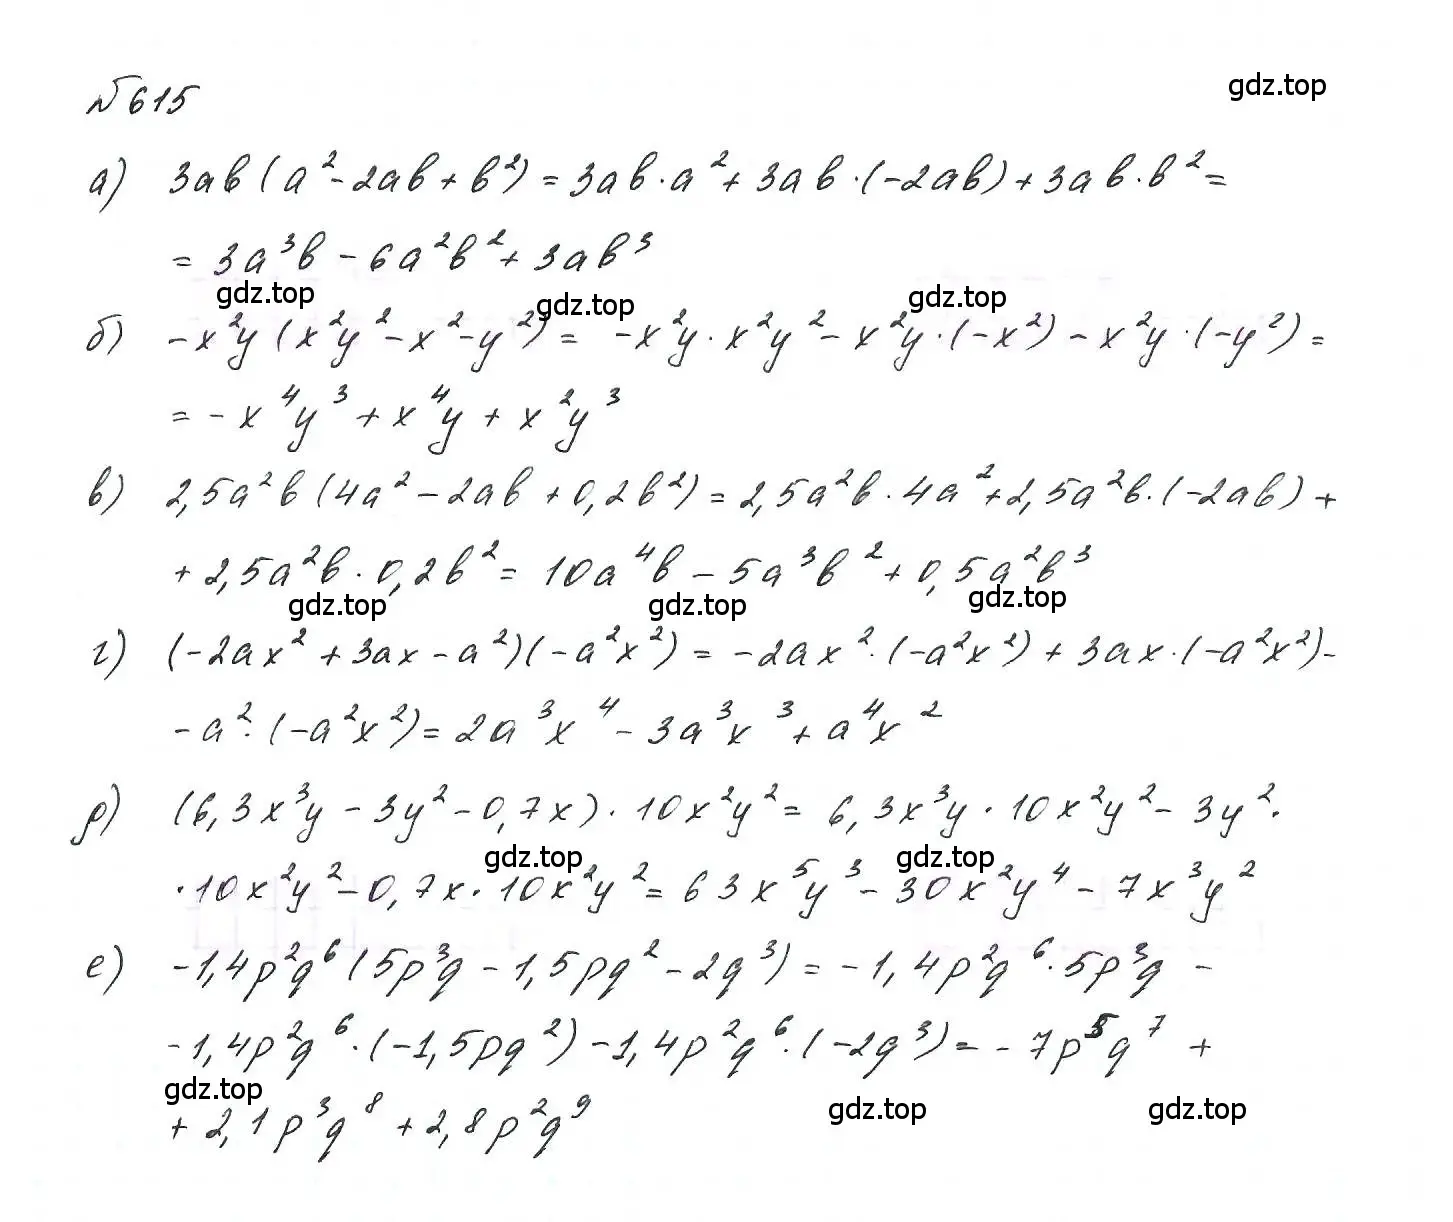 №615
gdz.top
а) 3ab(a²-2ab+b²)=3ab·a²+3ab·(-2ab)+3ab·b²=
=3a³b-6a²b²+3ab³
gdz.top gdz.top gdz.top
б) -x²y(x²y²-x²-y²)= -x²y·x²y²-x²y·(-x²)-x²y·(-y²)=
=-x⁴y³+x⁴y+x²y³
в) 2,5a²b(4a²-2ab+0,2b²)=2,5a²b·4a²+2,5a²b·(-2ab)+
+2,5a²b·0,2b²=10a⁴b-5a³b²+0,5a²b³
gdz.top gdz.top gdz.top
г) (-2ax²+3ax-a²)(-a²x²)=-2ax²·(-a²x²)+3ax·(-a²x²)-
-a²·(-a²x²)=2a³x⁴-3a³x³+a⁴x²
д) (6,3x³y-3y²-0,7x)·10x²y²=6,3x³y·10x²y²-3y²·
gdz.top gdz.top
·10x²y²-0,7x·10x²y²=63x⁵y³-30x²y⁴-7x³y²
е) -1,4p²q⁶(5p³q-1,5pq²-2q³)=-1,4p²q⁶·5p³q-
-1,4p²q⁶·(-1,5pq²)-1,4p²q⁶·(-2q³)=-7p⁵q⁷+
gdz.top gdz.top gdz.top
+2,1p³q⁸+2,8p²q⁹